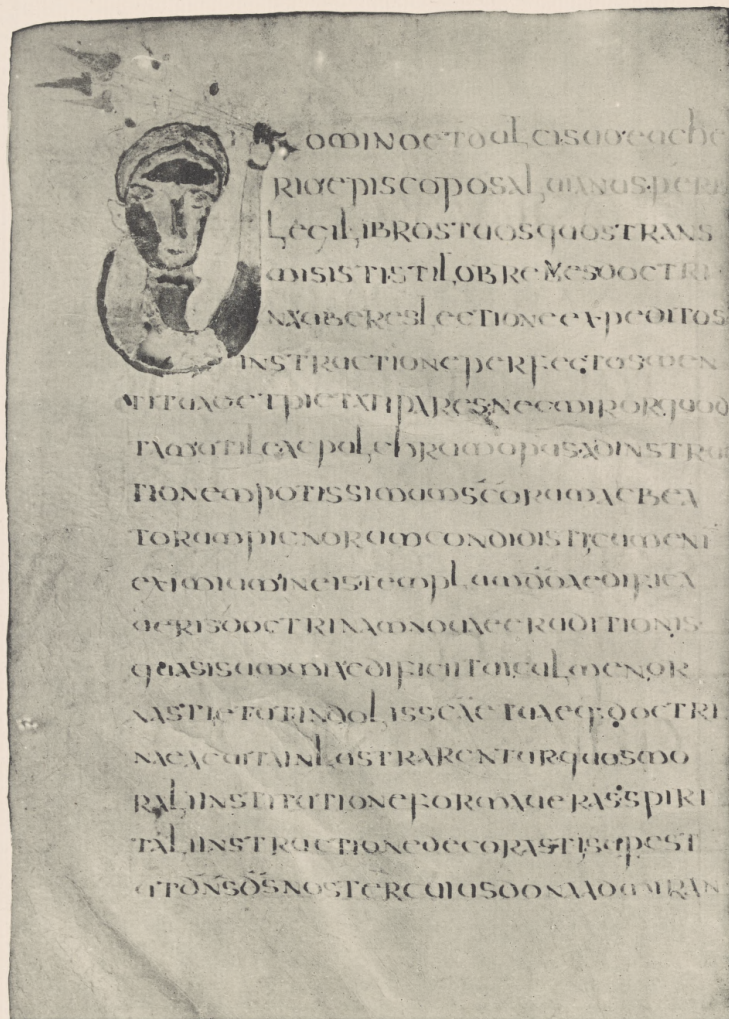 DOMINO ET DULCISUO EUCHE
RIO EPISCOPO SALUIANUS PERE
LEGI LIBROS TUOS QUOS TRANS
MISISTIS STILO BREUES DOCTRI
NA UBERES LECTIONE EXPEDITOS
INSTRUCTIONE PERFECTOS MEN
TI TUAE ET PIETATI PARES NEC MIROR QUOD
TAM UTILE AC PULCHRUM OPUS AD INSTRUC
TIONEM POTISSIMUM SCORUM AC BEA
TORUM PIGNORUM CONDIDISTI CUM ENI
EXIMIUM IN EIS TEMPLUM DO AEDIFICA
UERIS DOCTRINAM NOUAE ERUDITIONIS
QUASI SUMMI AEDIFICII TUI CULMEN OR
NASTI ET UT INDOLIS SCAE TUAEQ DOCTRI
NA EA UITA INLUSTRARENTUR QUOS MO
RALI INSTITUTIONE FORMAUERAS SPIRI
TALI INSTRUCTIONE DECORASTI SUPEST
UT DNS DS NOSTER CUIUS DONO ADMIRAN